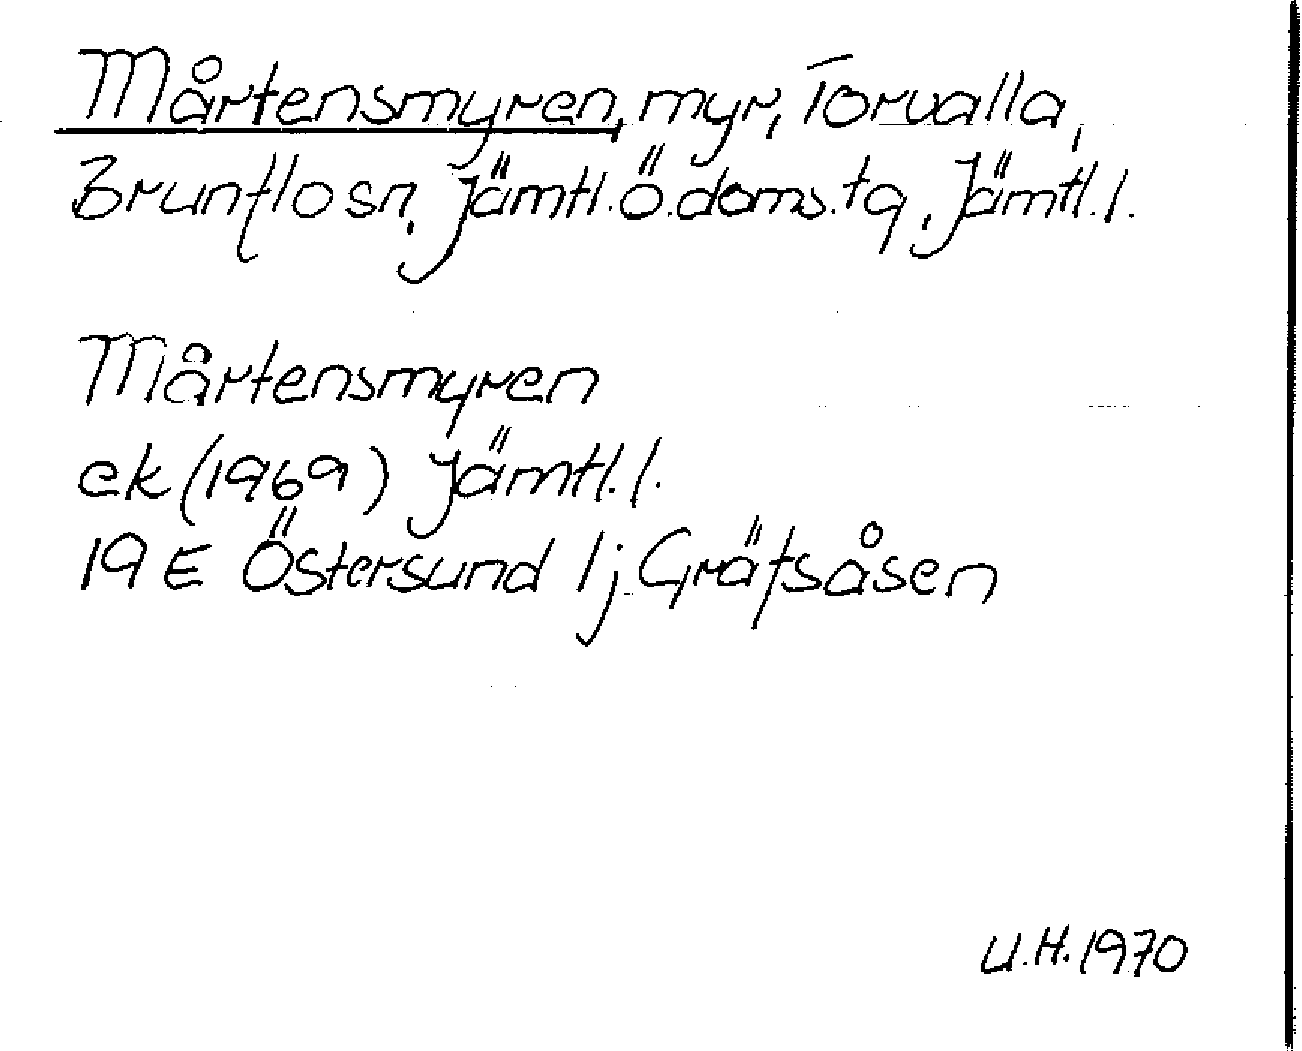 Mårtensmyren, myr, Torvalla,
Brunflo sn, Jämtl.ö.doms.tg, Jämtl.l.
Mårtensmyren
ek (1969) Jämtl.l.
19E Östersund 1j Gräfsåsen
U.H. 1970